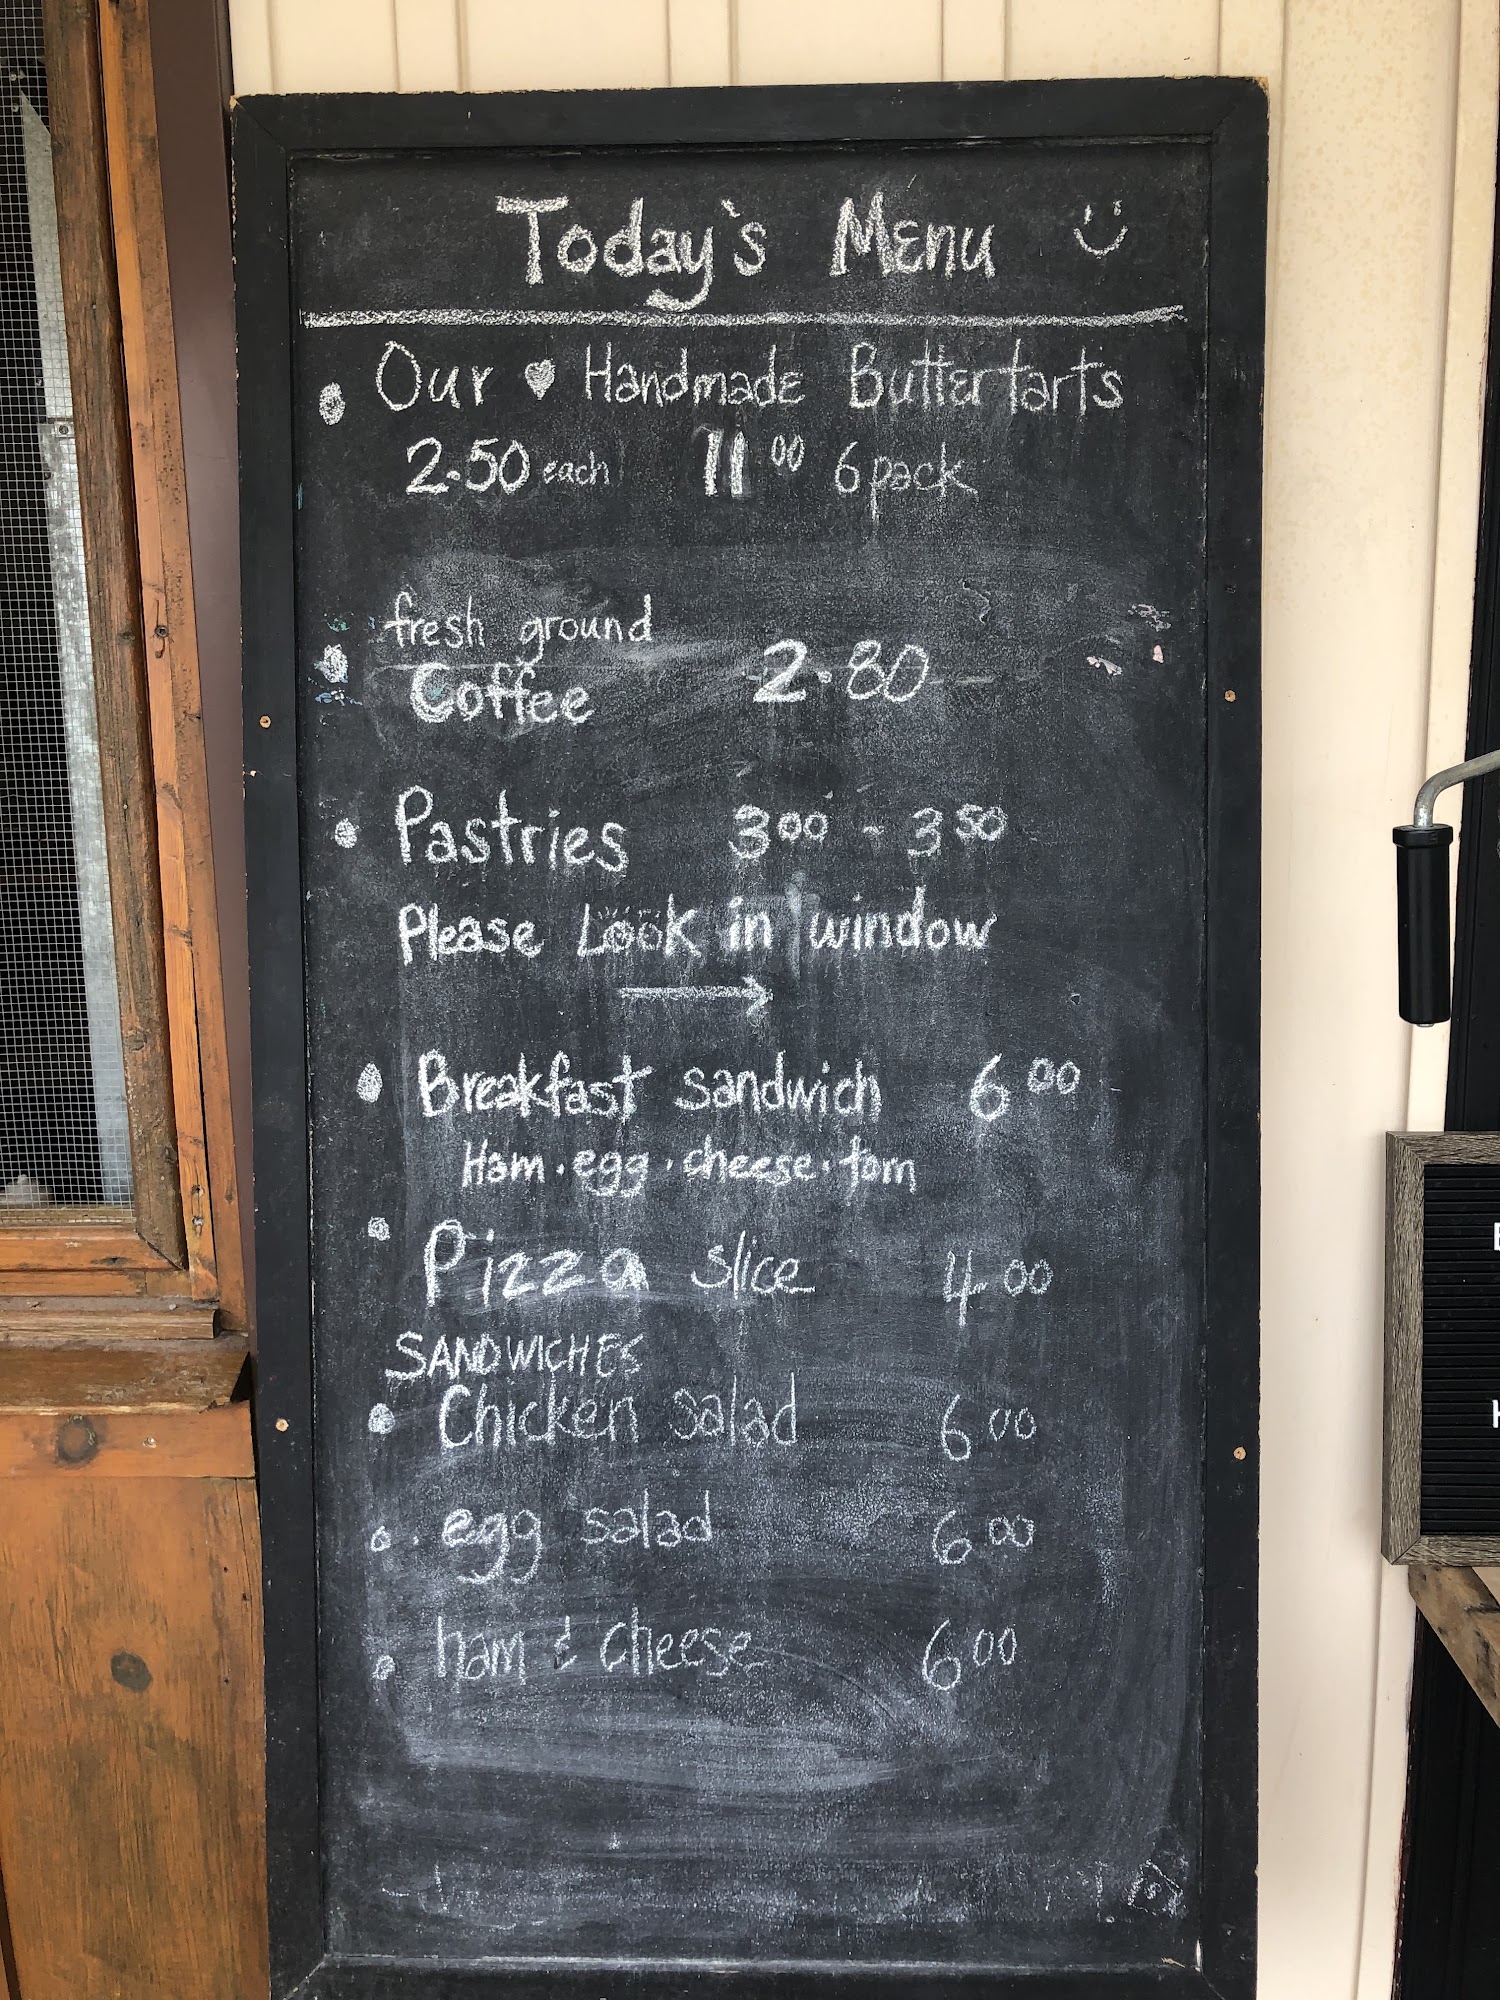 Today's Menu
Our ♥ Handmade Buttertarts
2.50 each 11.00 6 pack
fresh ground
Coffee 2.80
Pastries 3.00 - 3.50
Please Look in window
→
Breakfast sandwich 6.00
Ham · egg · cheese · tom
Pizza slice 4.00
SANDWICHES
Chicken salad 6.00
egg salad 6.00
ham & cheese 6.00